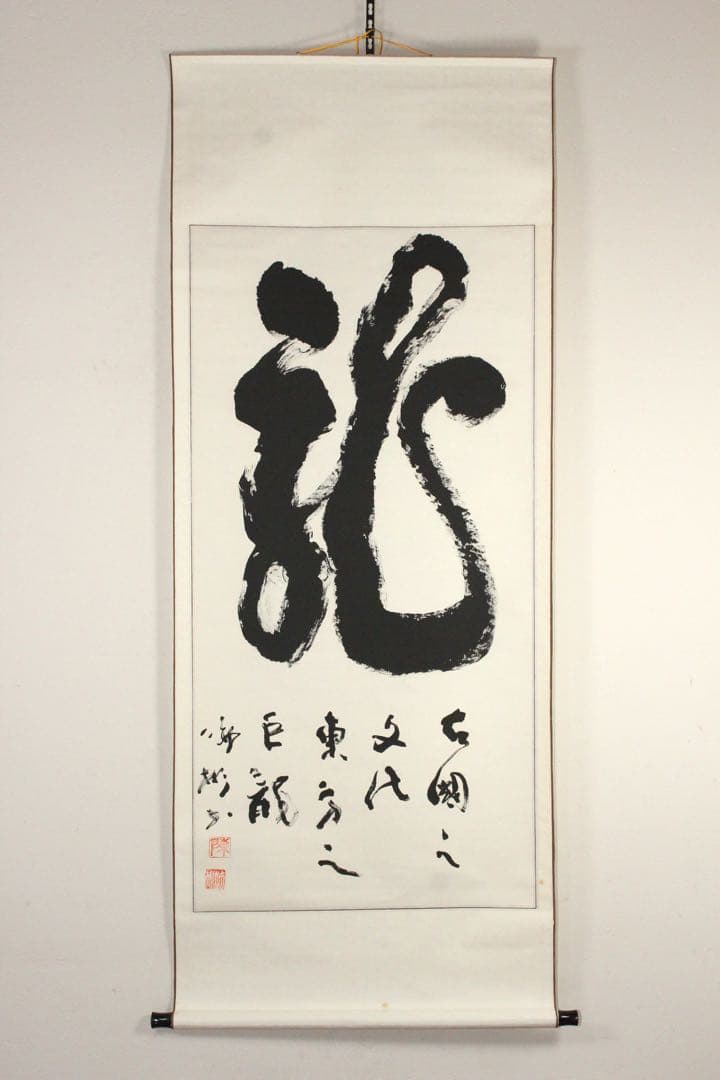 龍
古國之
文化
東方之
巨龍
彬书